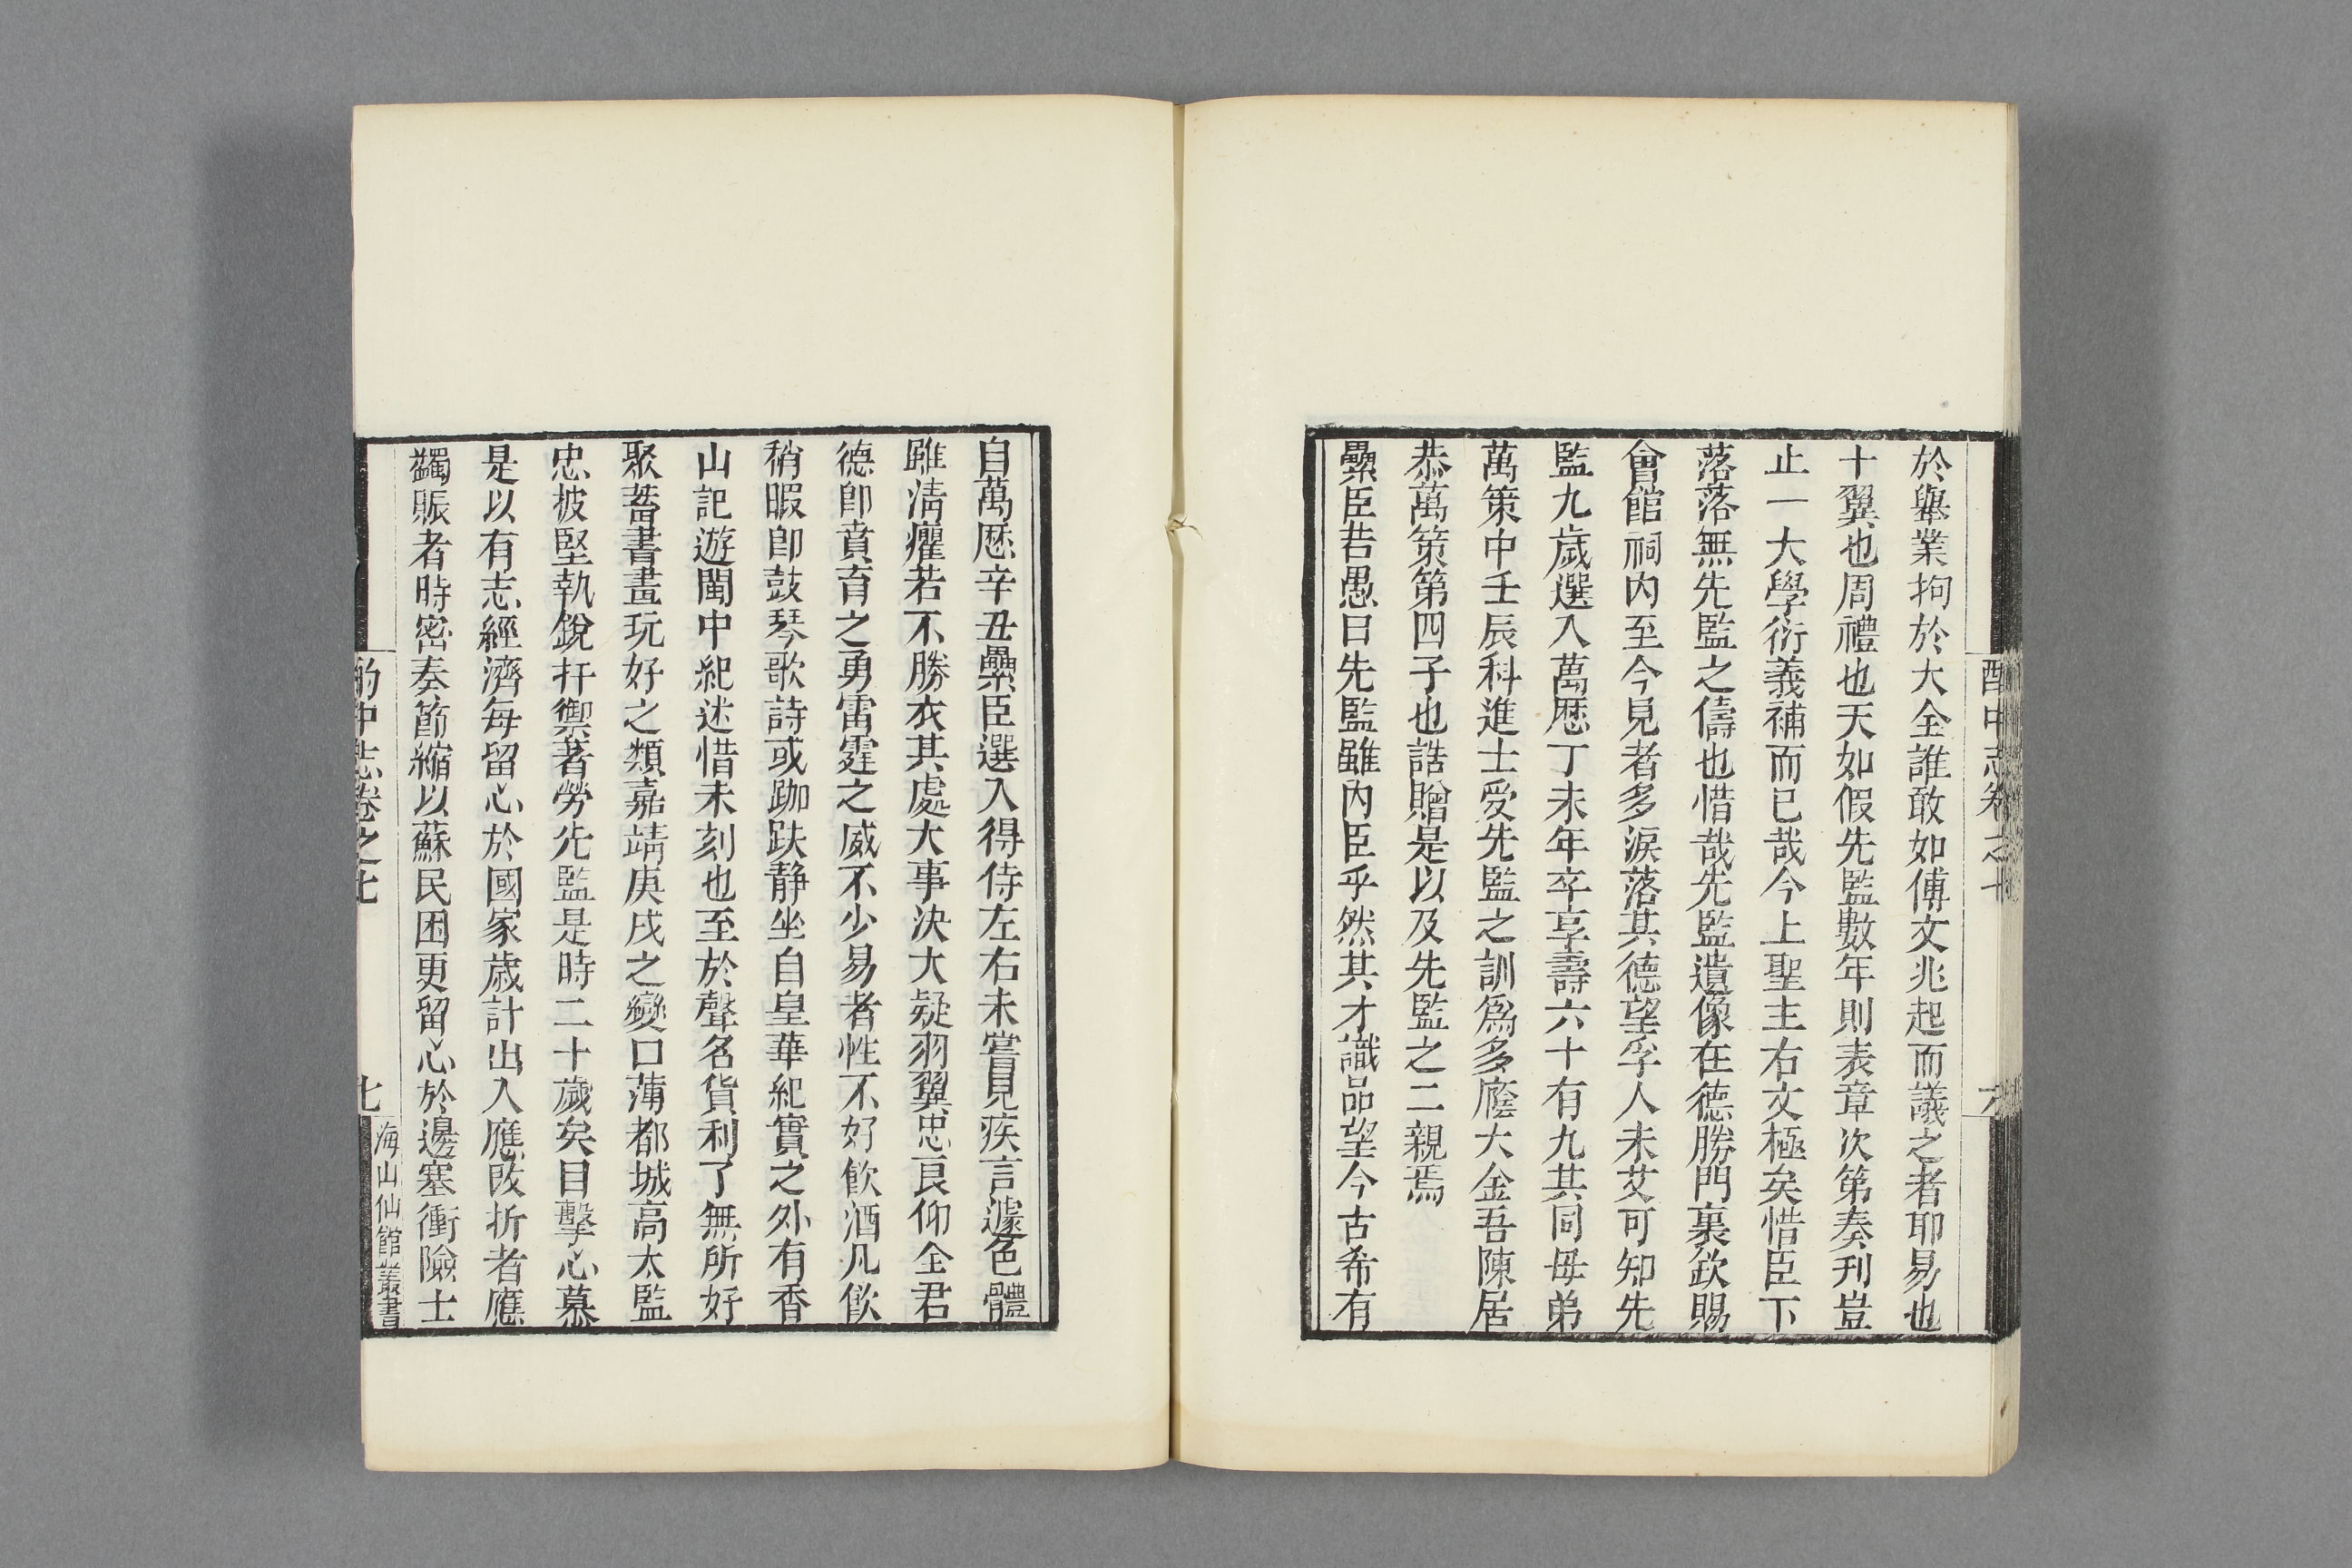 酌中志卷之七
六
於舉業拘於大全誰敢如傅文兆起而議之者耶易也
十翼也周禮也天如假先監數年則表章次第奏刊豈
止一大學衍義補而已哉今上聖主右文極矣惜臣下
落落無先監之儔也惜哉先監遺像在德勝門裏欽賜
會館祠內至今見者多淚落其德望孚人未艾可知先
監九歲選入萬歷丁未年卒享壽六十有九其同母弟
萬策中壬辰科進士受先監之訓爲多廕大金吾陳居
恭萬策第四子也誥贈是以及先監之二親焉
纍臣若愚曰先監雖內臣乎然其才識品望今古希有
自萬歷辛丑纍臣選入得侍左右未嘗見疾言遽色體
雖清癯若不勝衣其處大事決大疑羽翼忠良仰全君
德卽賁育之勇雷霆之威不少易者性不好飲酒凡飲
稍暇卽鼓琴歌詩或跏趺靜坐自皇華紀實之外有香
山記遊閩中紀述惜未刻也至於聲名貨利了無所好
聚蓄書畫玩好之類嘉靖庚戌之變口薄都城高太監
忠披堅執銳扞禦著勞先監是時二十歲矣目擊心慕
是以有志經濟每留心於國家歲計出入應改折者應
蠲賑者時密奏節縮以蘇民困更留心於邊塞衝險士
酌中志卷之七
七
海山仙館叢書